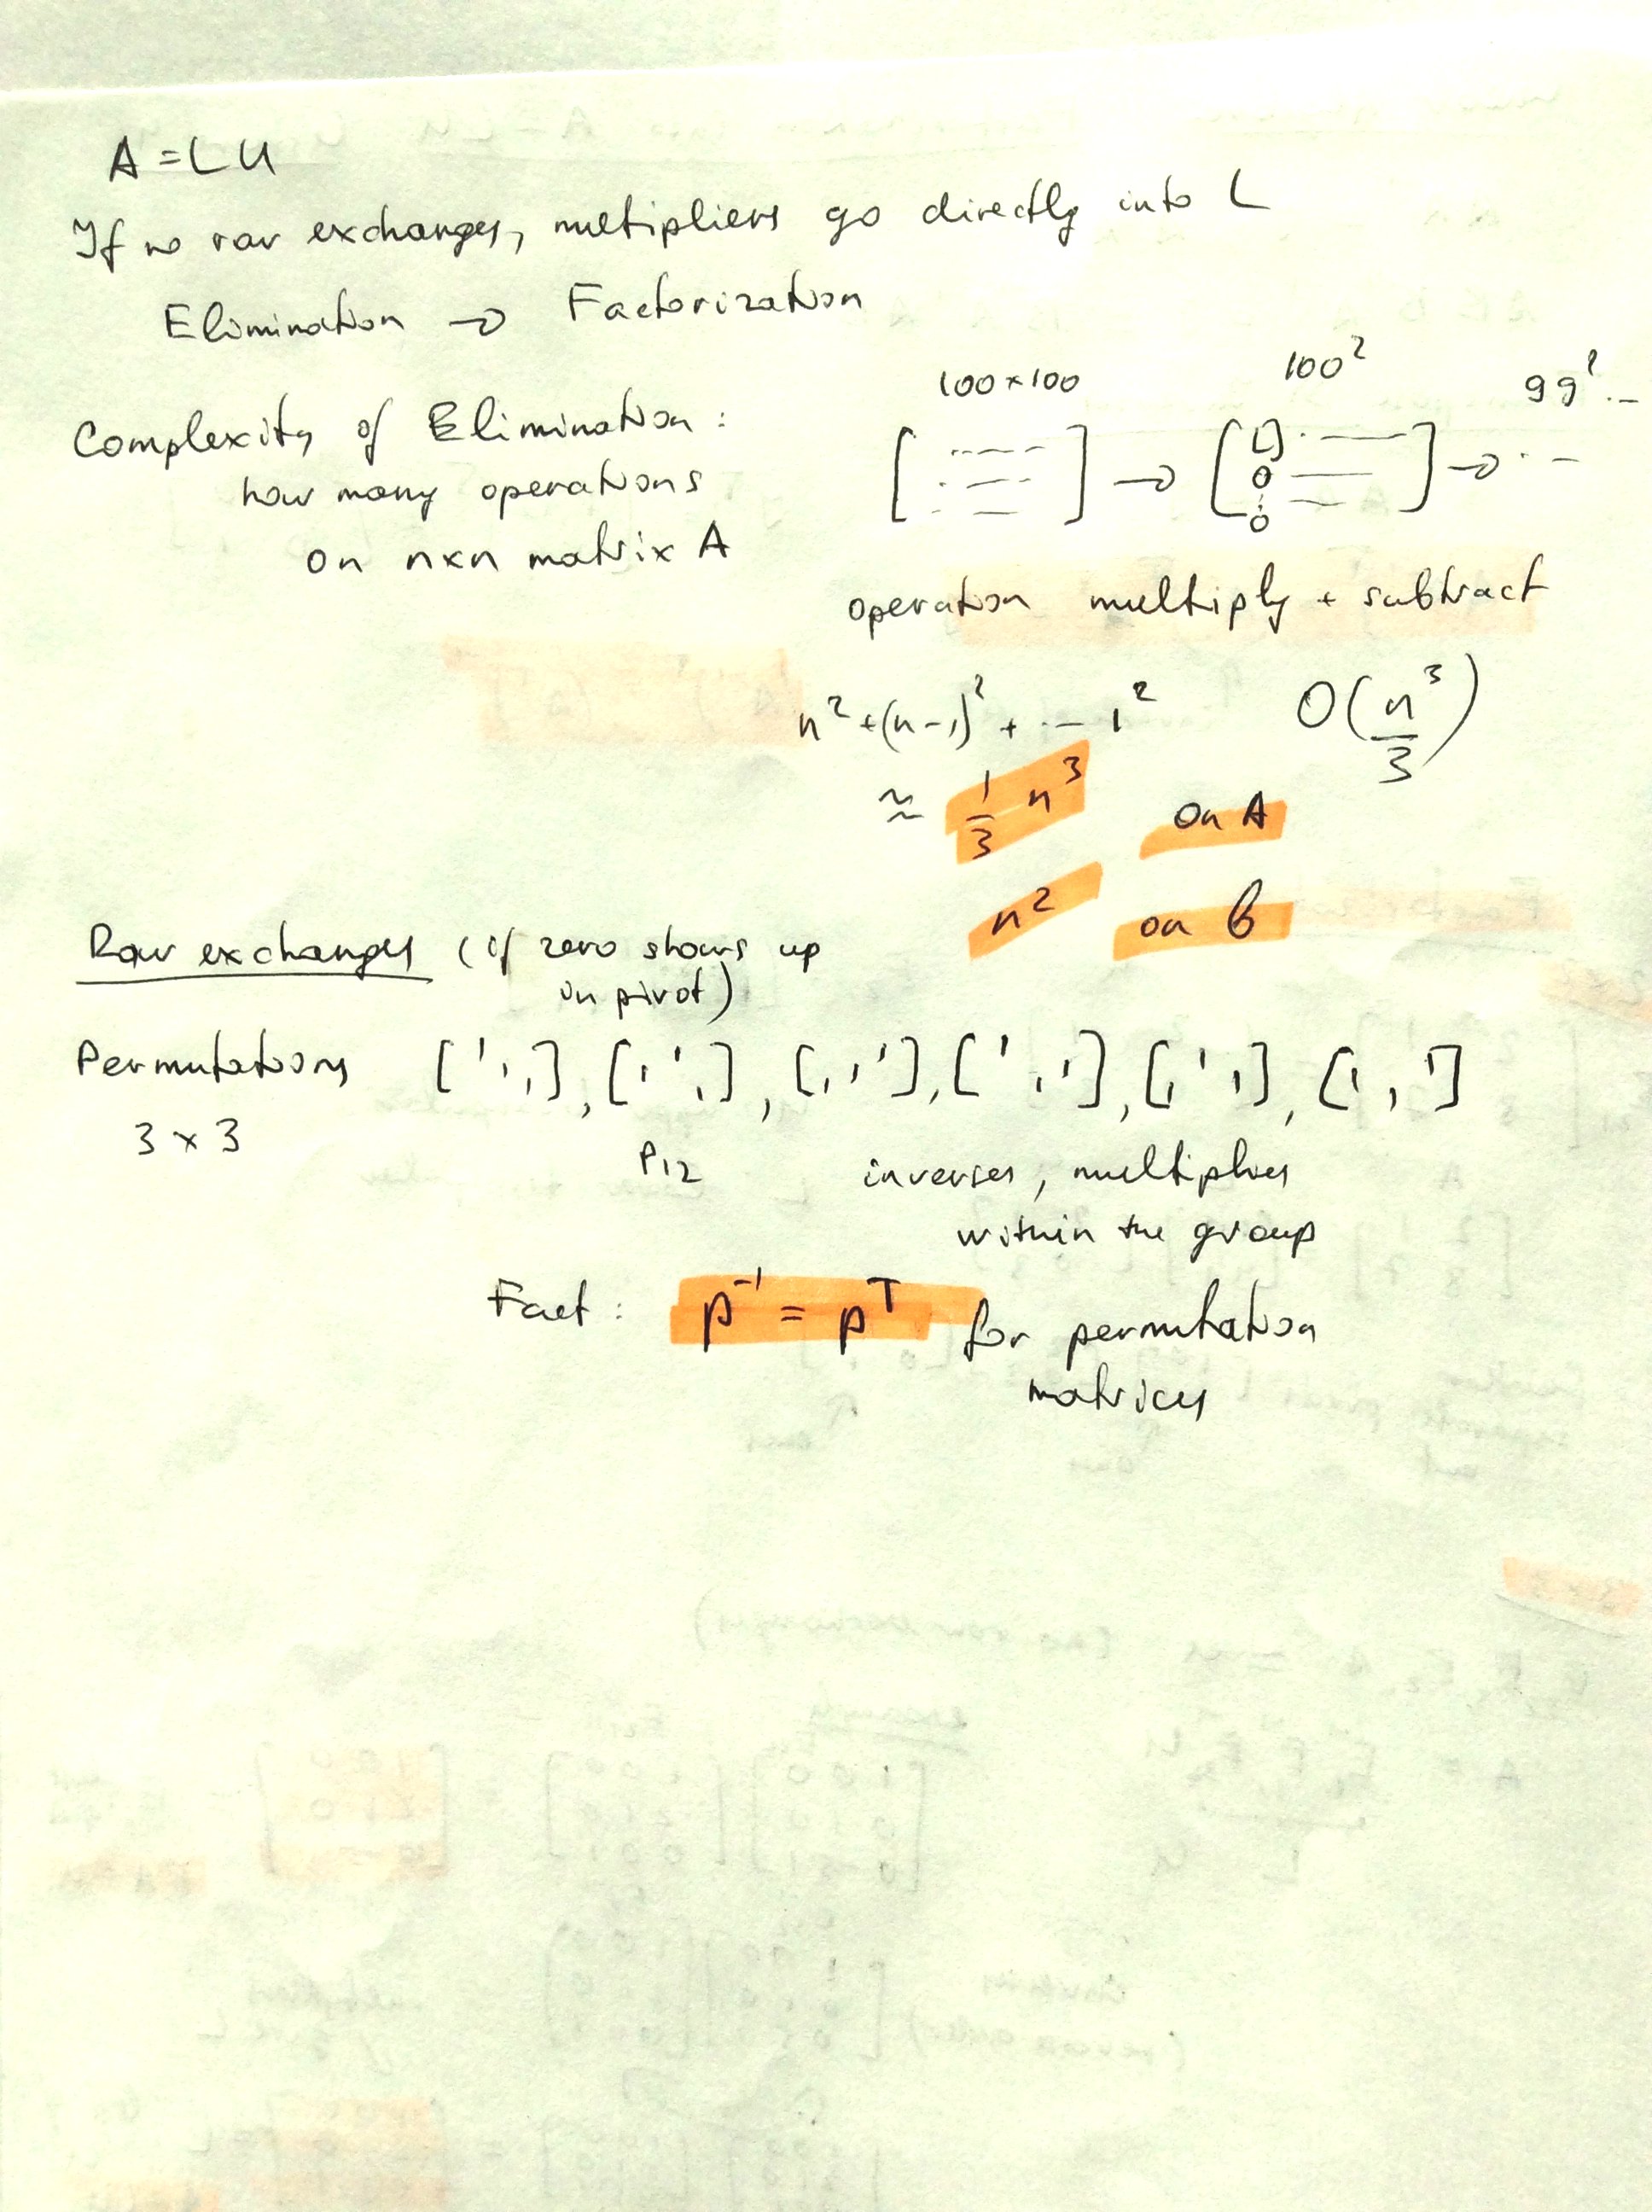 A = LU
If no row exchanges, multipliers go directly into L
Elimination → Factorization
Complexity of Elimination:
how many operations
on n×n matrix A
100×100 100² 99² ..
[ ] → [ [] 0 : 0 ] → ..
operation multiply + subtract
n² + (n-1)² + ... 1² O(n³/3)
≈ 1/3 n³ on A
n² on b
Row exchanges (if zero shows up
in pivot)
Permutations [1 1 1], [1 1 1], [1 1 1], [1 1 1], [1 1 1], [1 1 1]
3 × 3
P12 inverses, multiplies
within the group
Fact: P⁻¹ = Pᵀ for permutation
matrices